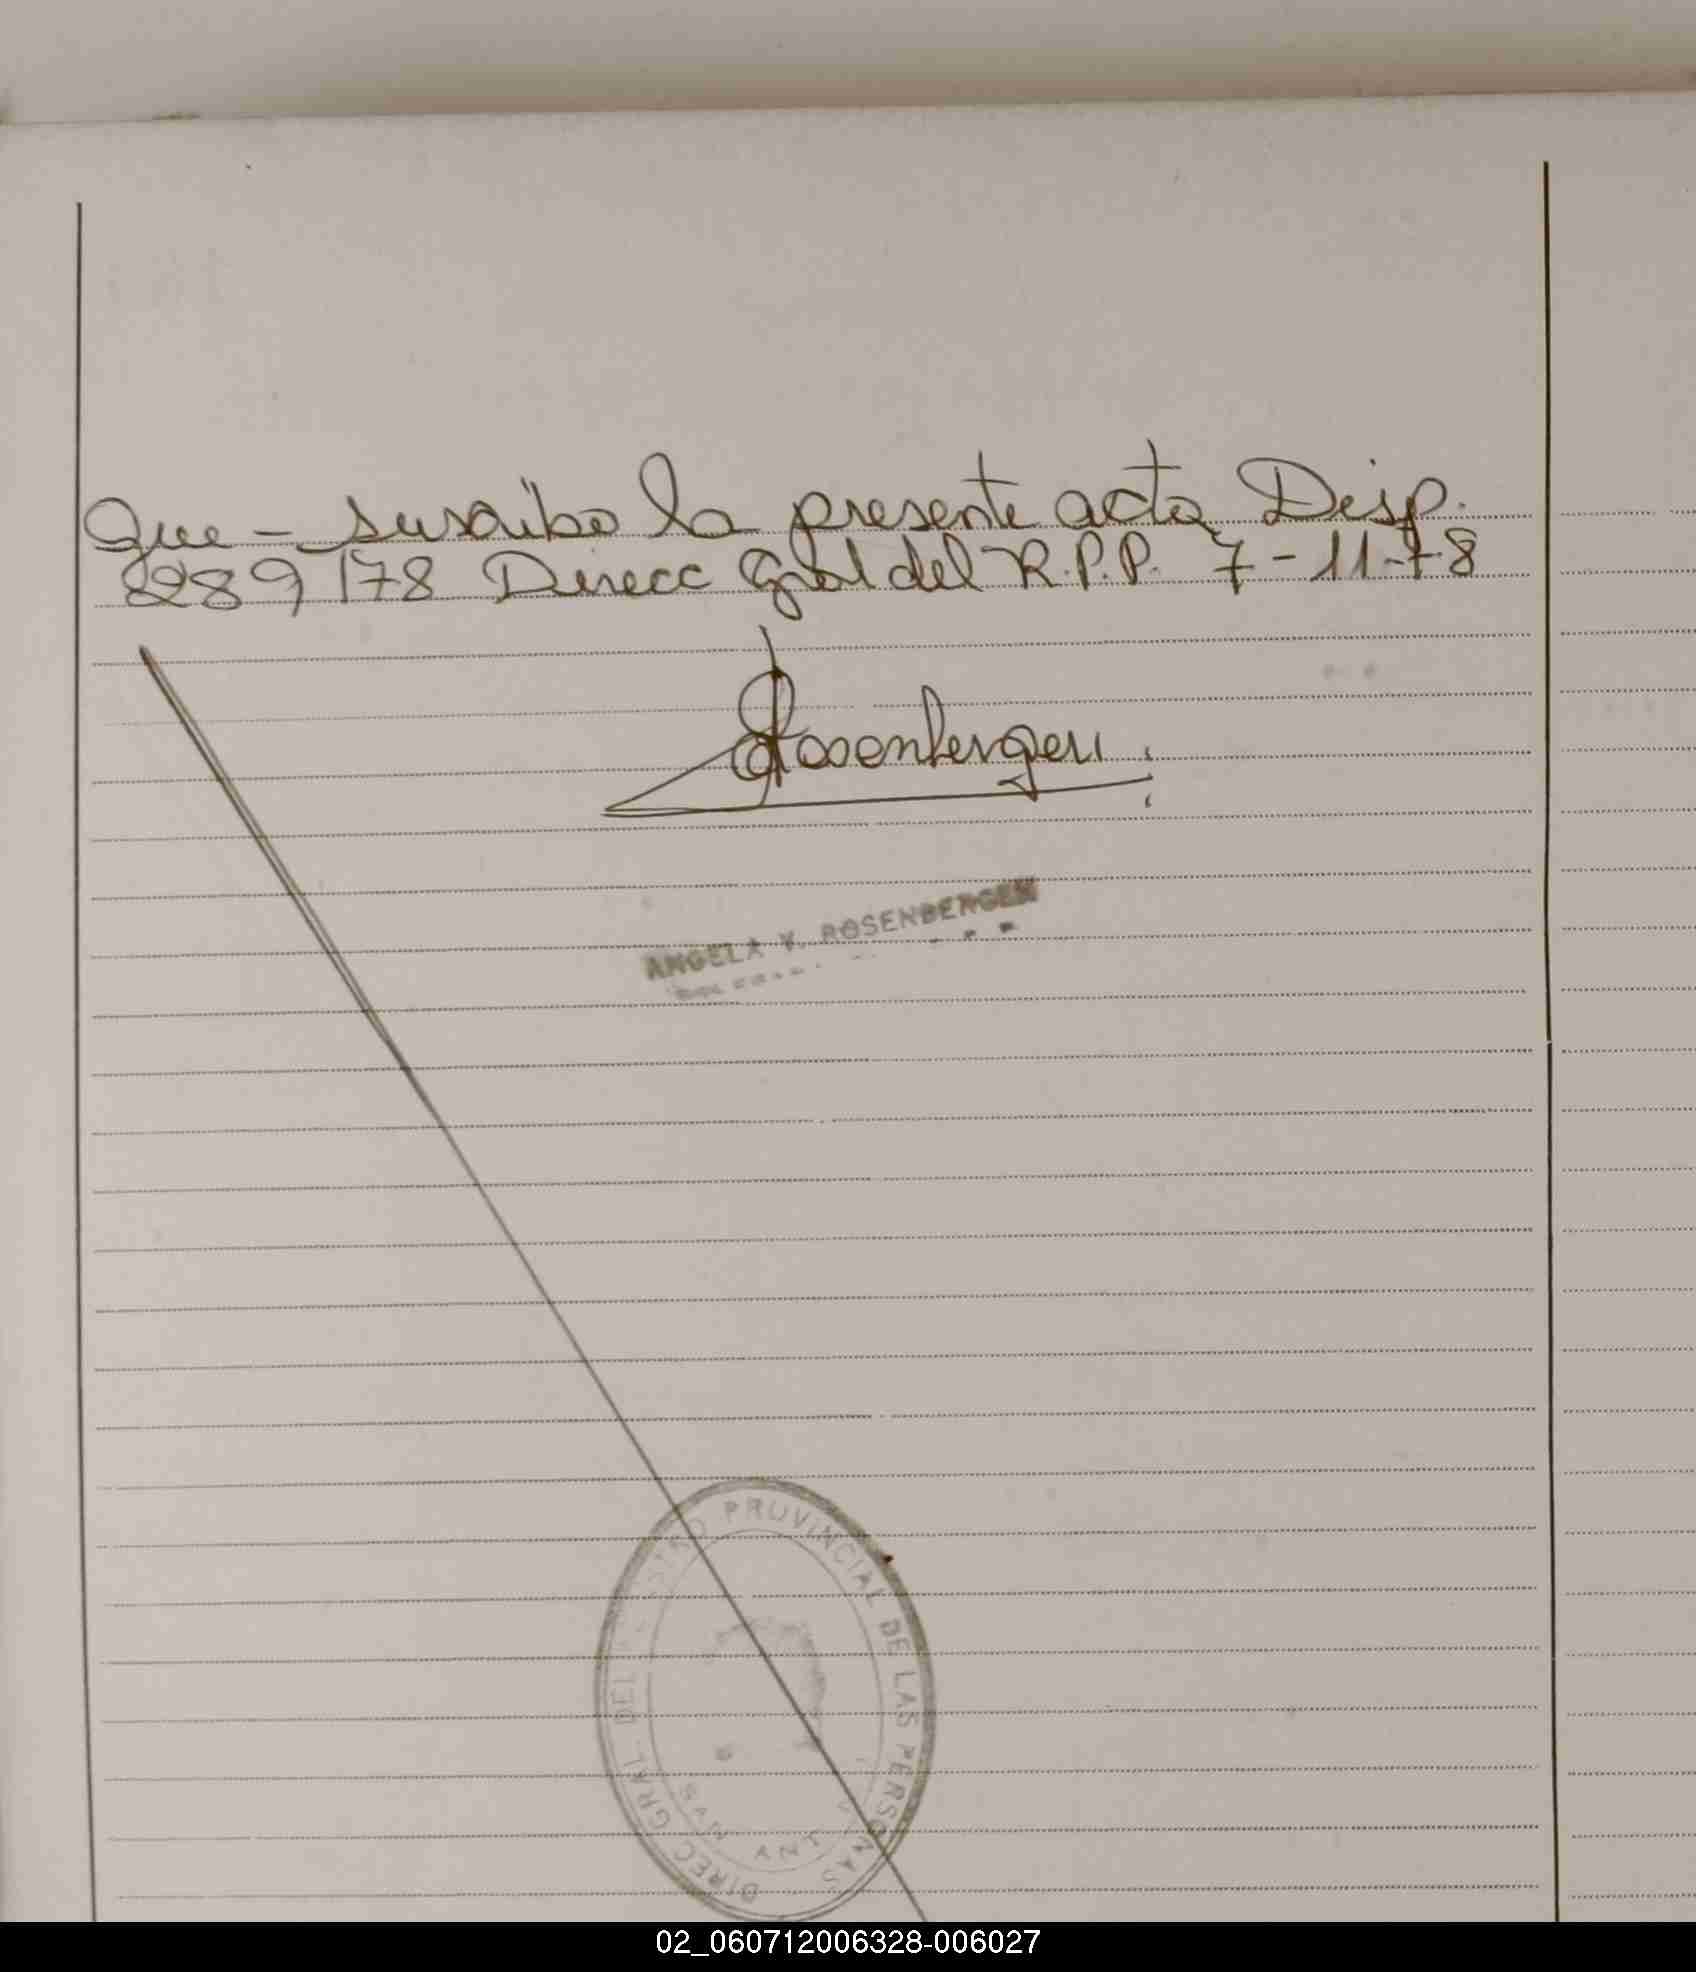 que - suscribo la presente acta Disp.
289/78 Direcc Gral del R.P.P. 7-11-78
Rosenbergen
ANGELA Y. ROSENBERGEN
DIREC GRAL DEL PROVINCIAL DE LAS PERSONAS
SAN
02_060712006328-006027